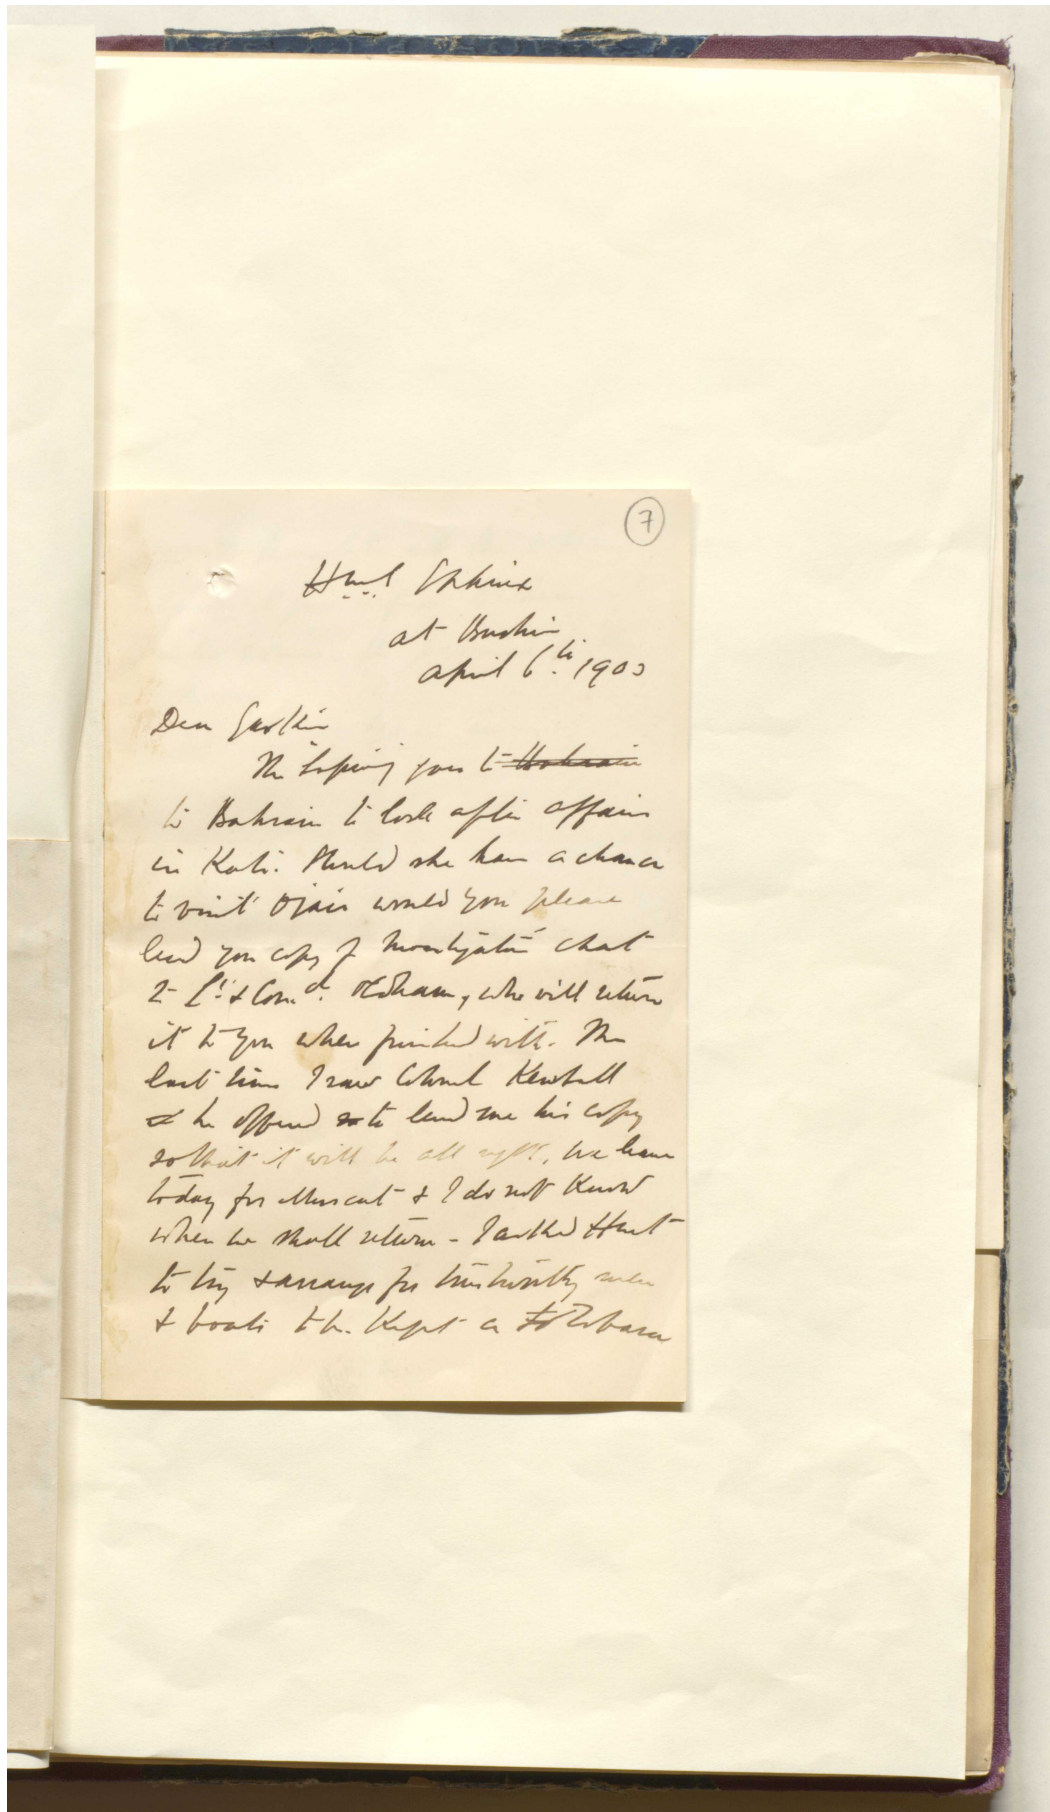 7
H.M.S Sphinx
at Bushire
April 6th. 1903
Dear Gaskin
The Lapwing goes to Bahrain
to Bahrain to look after affairs
in Katr. Should she have a chance
to visit Ojair would you please
lend your copy of Investigator chart
to Lt. & Comd. Oldham, who will return
it to you when finished with. The
last time I saw Colonel Kemball
he offered to lend me his copy
so that it will be all right. We leave
today for Muscat & I do not know
when we shall return - I asked Hunt
to try & arrange for trustworthy men
& boats to be kept